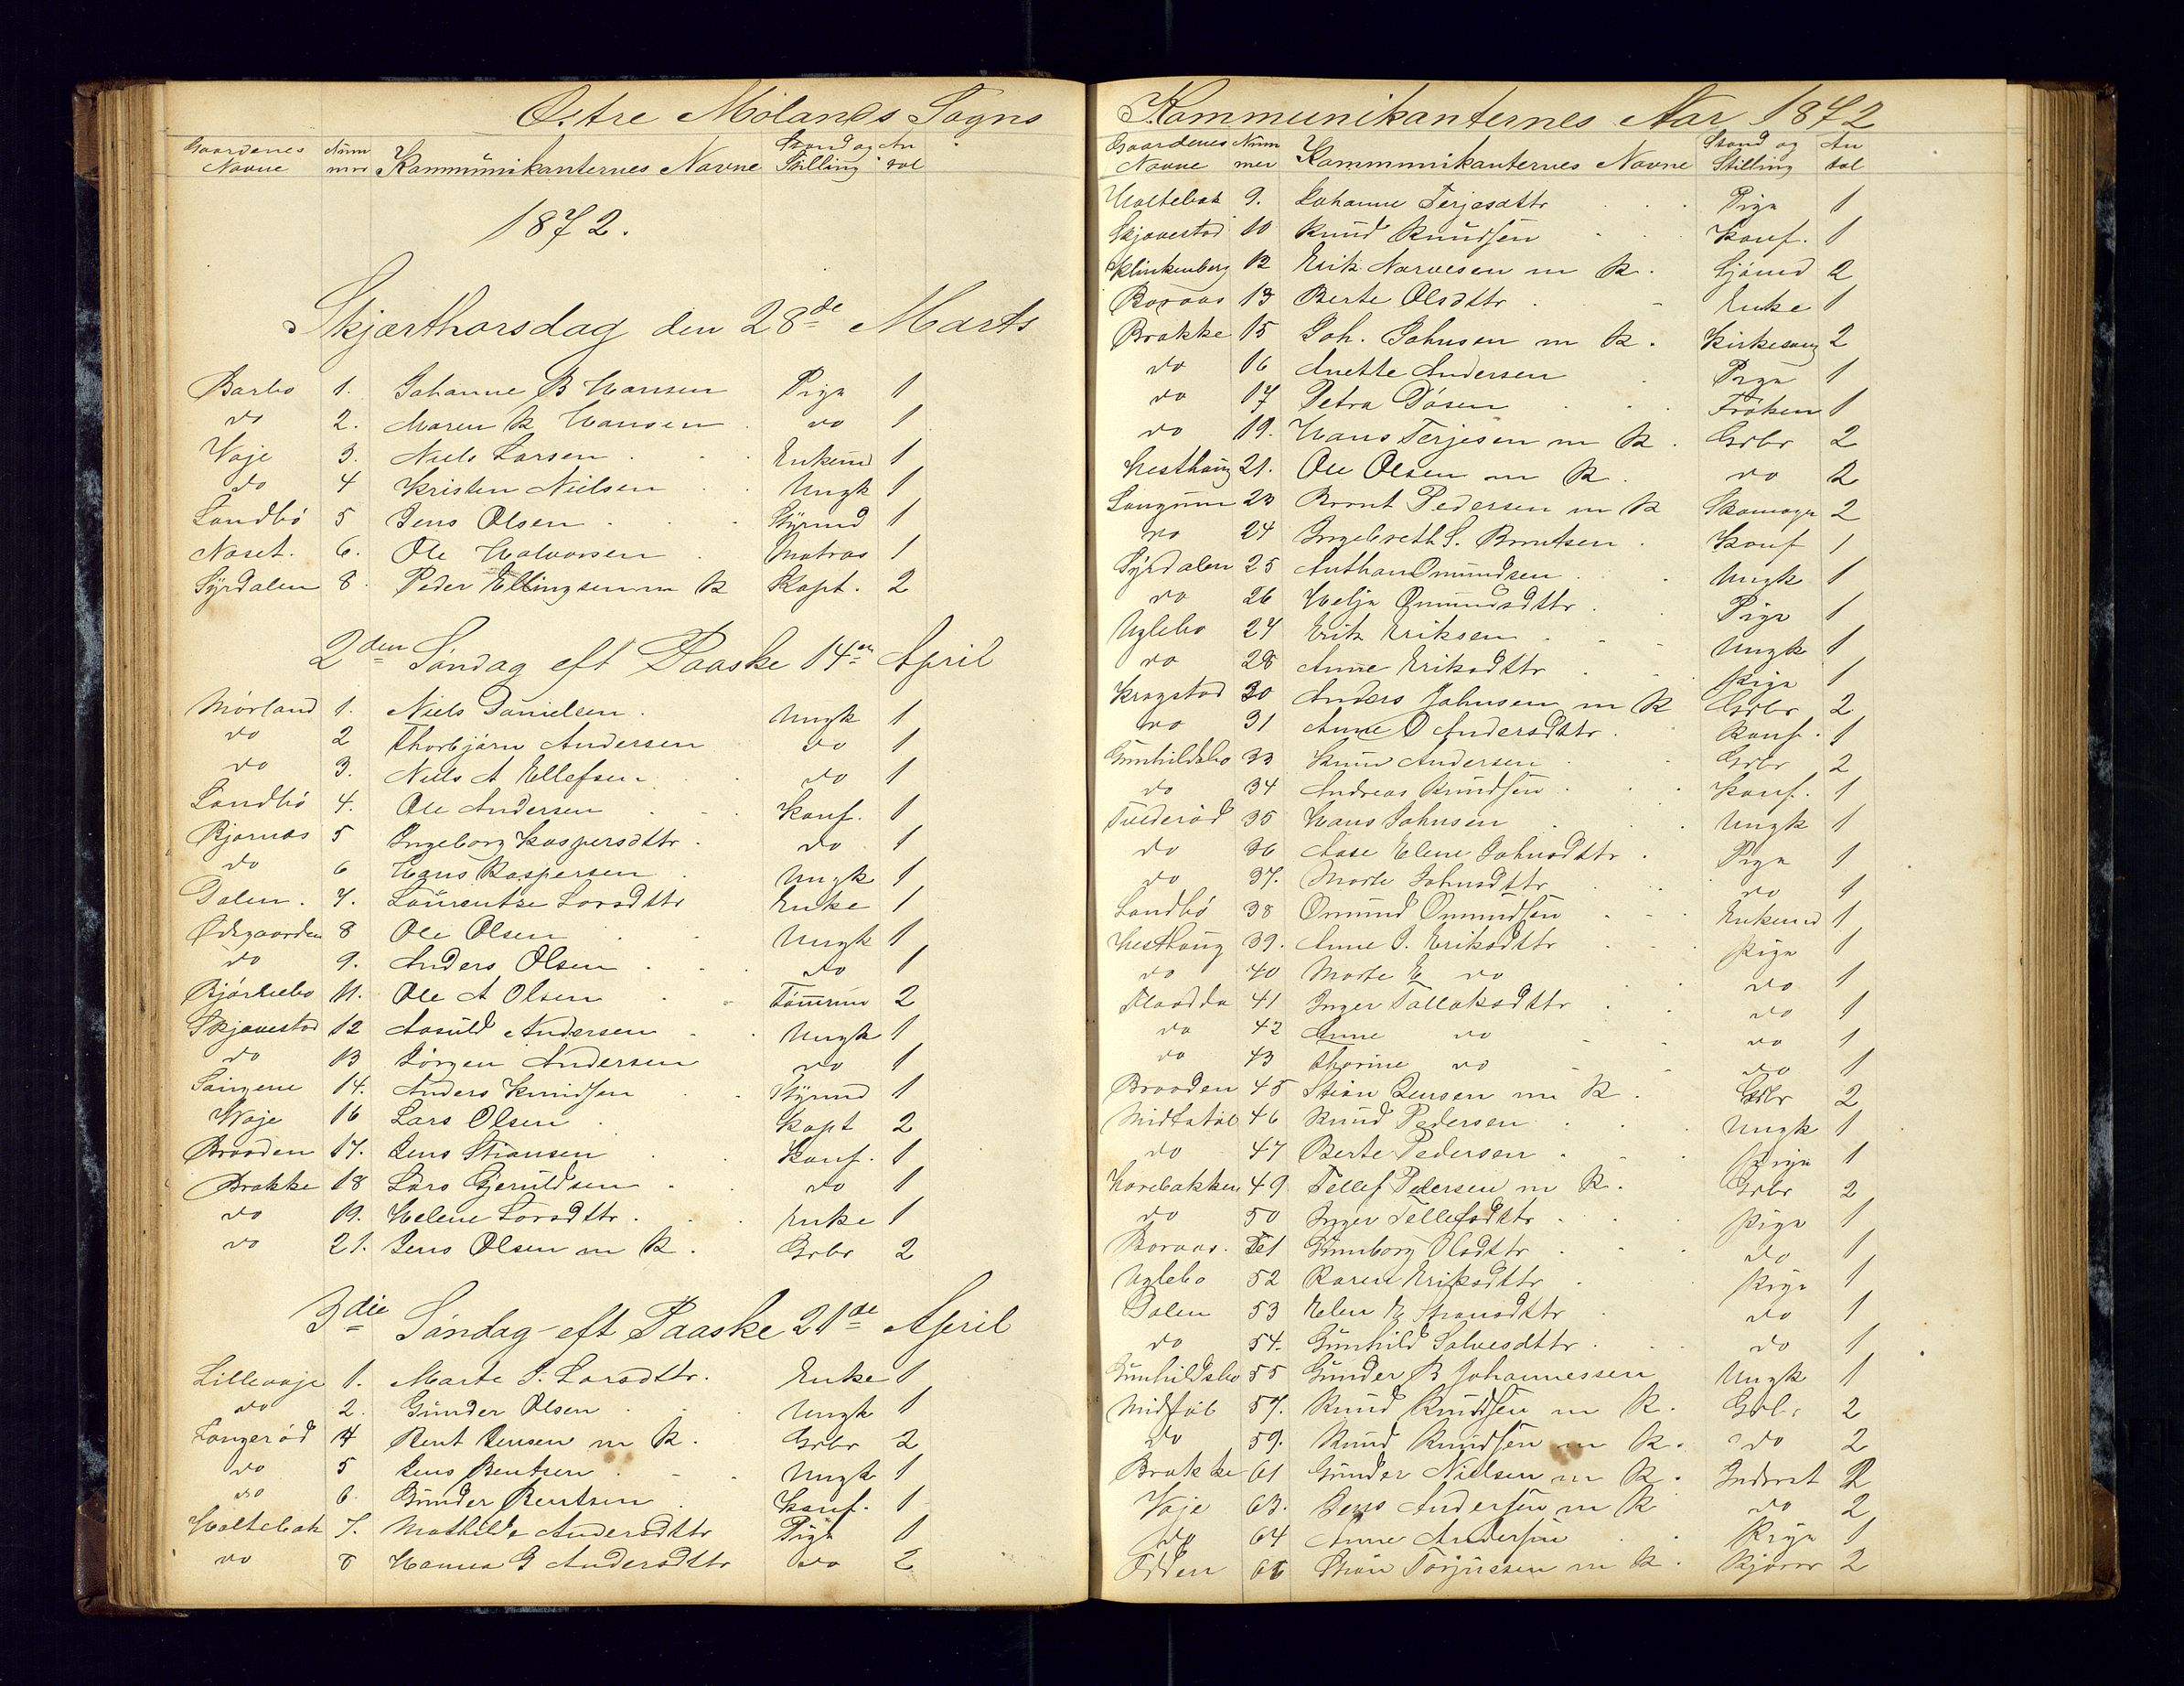 Østre Molands Sogns
Gaardenes Navne Num mer Kommunikanternes Navne Stand og Stilling An tal
1872.
Skjærthorsdag den 28de Marts
Barbo 1. Johanne B Hansen Pige 1
do 2. Maren K Hansen do 1
Vaje 3. Niels Larsen Enkemd 1
do 4 Kristen Nielsen Ungk 1
Sandbö 5 Jens Olsen Styrmd 1
Naset. 6. Ole Halvorsen Matros 1
Syrdalen 8. Peder Ellingsen m K Kapt. 2
2den Söndag eft Paaske 14de April
Mörland 1. Niels Danielsen. Ungk 1
do 2 Thorbjörn Andersen do 1
do 3. Niels A Ellefsen do 1
Sandbö 4. Ole Andersen Konf. 1
Bjornæs 5 Ingeborg Kaspersdttr. do 1
do 6 Hans Kaspersen Ungk 1
Dalen. 7. Laurentze Larsdttr Enke 1
Ödegaarden 8 Ole Olsen Ungk 1
do 9. Anders Olsen do 1
11. Ole A Olsen Tömrm 2
Skjævestad 12 Aasuld Andersen Ungk 1
do 13 Jörgen Andersen do 1
14. Anders Knudsen Styrmd 1
Waje 16 Lars Olsen Kapt 2
Braaden 17. Jens Stiansen Konf. 1
Brække 18 Lars Gjeruldsen do 1
do 19. Helene Larsdttr. Enke 1
do 21. Jens Olsen m K. Grbr 2
3die Söndag eft Paaske 21de April
Lillevaje 1. Marte J. Larsdttr. Enke 1
do 2. Gunder Olsen Ungk 1
Longeröd 4 Bent Jensen m K. Grbr 2
do 5 Jens Bentsen Ungk 1
do 6. Gunder Bentsen Konf. 1
Holtebak 7. Mathilde Andersdttr Pige 1
do 8 Hanna G Andersdttr do 2
Kommunikanternes Aar 1872
Gaardenes Navne Num mer Kommunikanternes Navne Stand og Stilling An tal
Holtebak 9. Johanne Terjesdttr Pige 1
Skjævestad 10 Knud Knudsen Konf. 1
Klinkenberg 12 Erik Narvesen m K. Sjömd 2
Boraas 13 Berte Olsdttr Enke 1
Brække 15 Joh. Johnsen m K. Kirkesang 2
do 16 Anette Andersen Pige 1
do 17 Petra Dösen Fröken 1
do 19. Hans Terjesen m K. Grbr 2
Hesthaug 21. Ole Olsen m K. do 2
Langum 23 Bernt Pedersen m K 2
do 24 Ingebreth S. Berntsen Konf 1
Syrdalen 25 Anthon Omundsen Ungk 1
do 26 Helje Omundsdttr Pige 1
Uglebo 27 Erik Eriksen Ungk 1
do 28 Anne Eriksdttr Pige 1
Kragstad 30 Anders Johnsen m K Grbr 2
do 31 Anne O Andersdttr. Konf. 1
Gunhildsbo 33 Knud Andersen Grbr 2
do 34 Andreas Knudsen Konf. 1
Tvederöd 35 Hans Johnsen Ungk 1
do 36 Aase Elene Johnsdttr. Pige 1
do 37. Marte Johnsdttr do 1
Sandbö 38 Omund Omundsen Enkemd 1
Hesthaug 39. Anne J. Eriksdttr Pige 1
do 40 Marte E do do 1
Flaadda 41 Inger Tallaksdttr do 1
do 42 Anne do do 1
do 43 Thorine do do 1
Braaden 45 Stian Jensen m K. Grbr 2
Midtstöl 46 Knud Pedersen Ungk 1
do 47 Berte Pedersen Pige 1
Harebakken 49 Tellef Pedersen m K. Grbr 2
do 50 Inger Tellefsdttr Pige 1
Boraas. 51 Gunborg Olsdttr do 1
Uglebo 52 Karen Eriksdttr Pige 1
Dalen 53 Elen E do 1
do 54. Gunhild Salvesdttr. do 1
Gunhildsbo 55 Gunder B Johannessen Ungk 1
57. Knud Knudsen m K. Grbr 2
do 59. Knud Knudsen m K. do 2
Brække 61 Gunder Nielsen m K. Inderst 2
Vaje 63. Jens Andersen m K do 2
do 64 Anne Andersen Pige 1
Odden 66 Stian Torjussen m K. 2